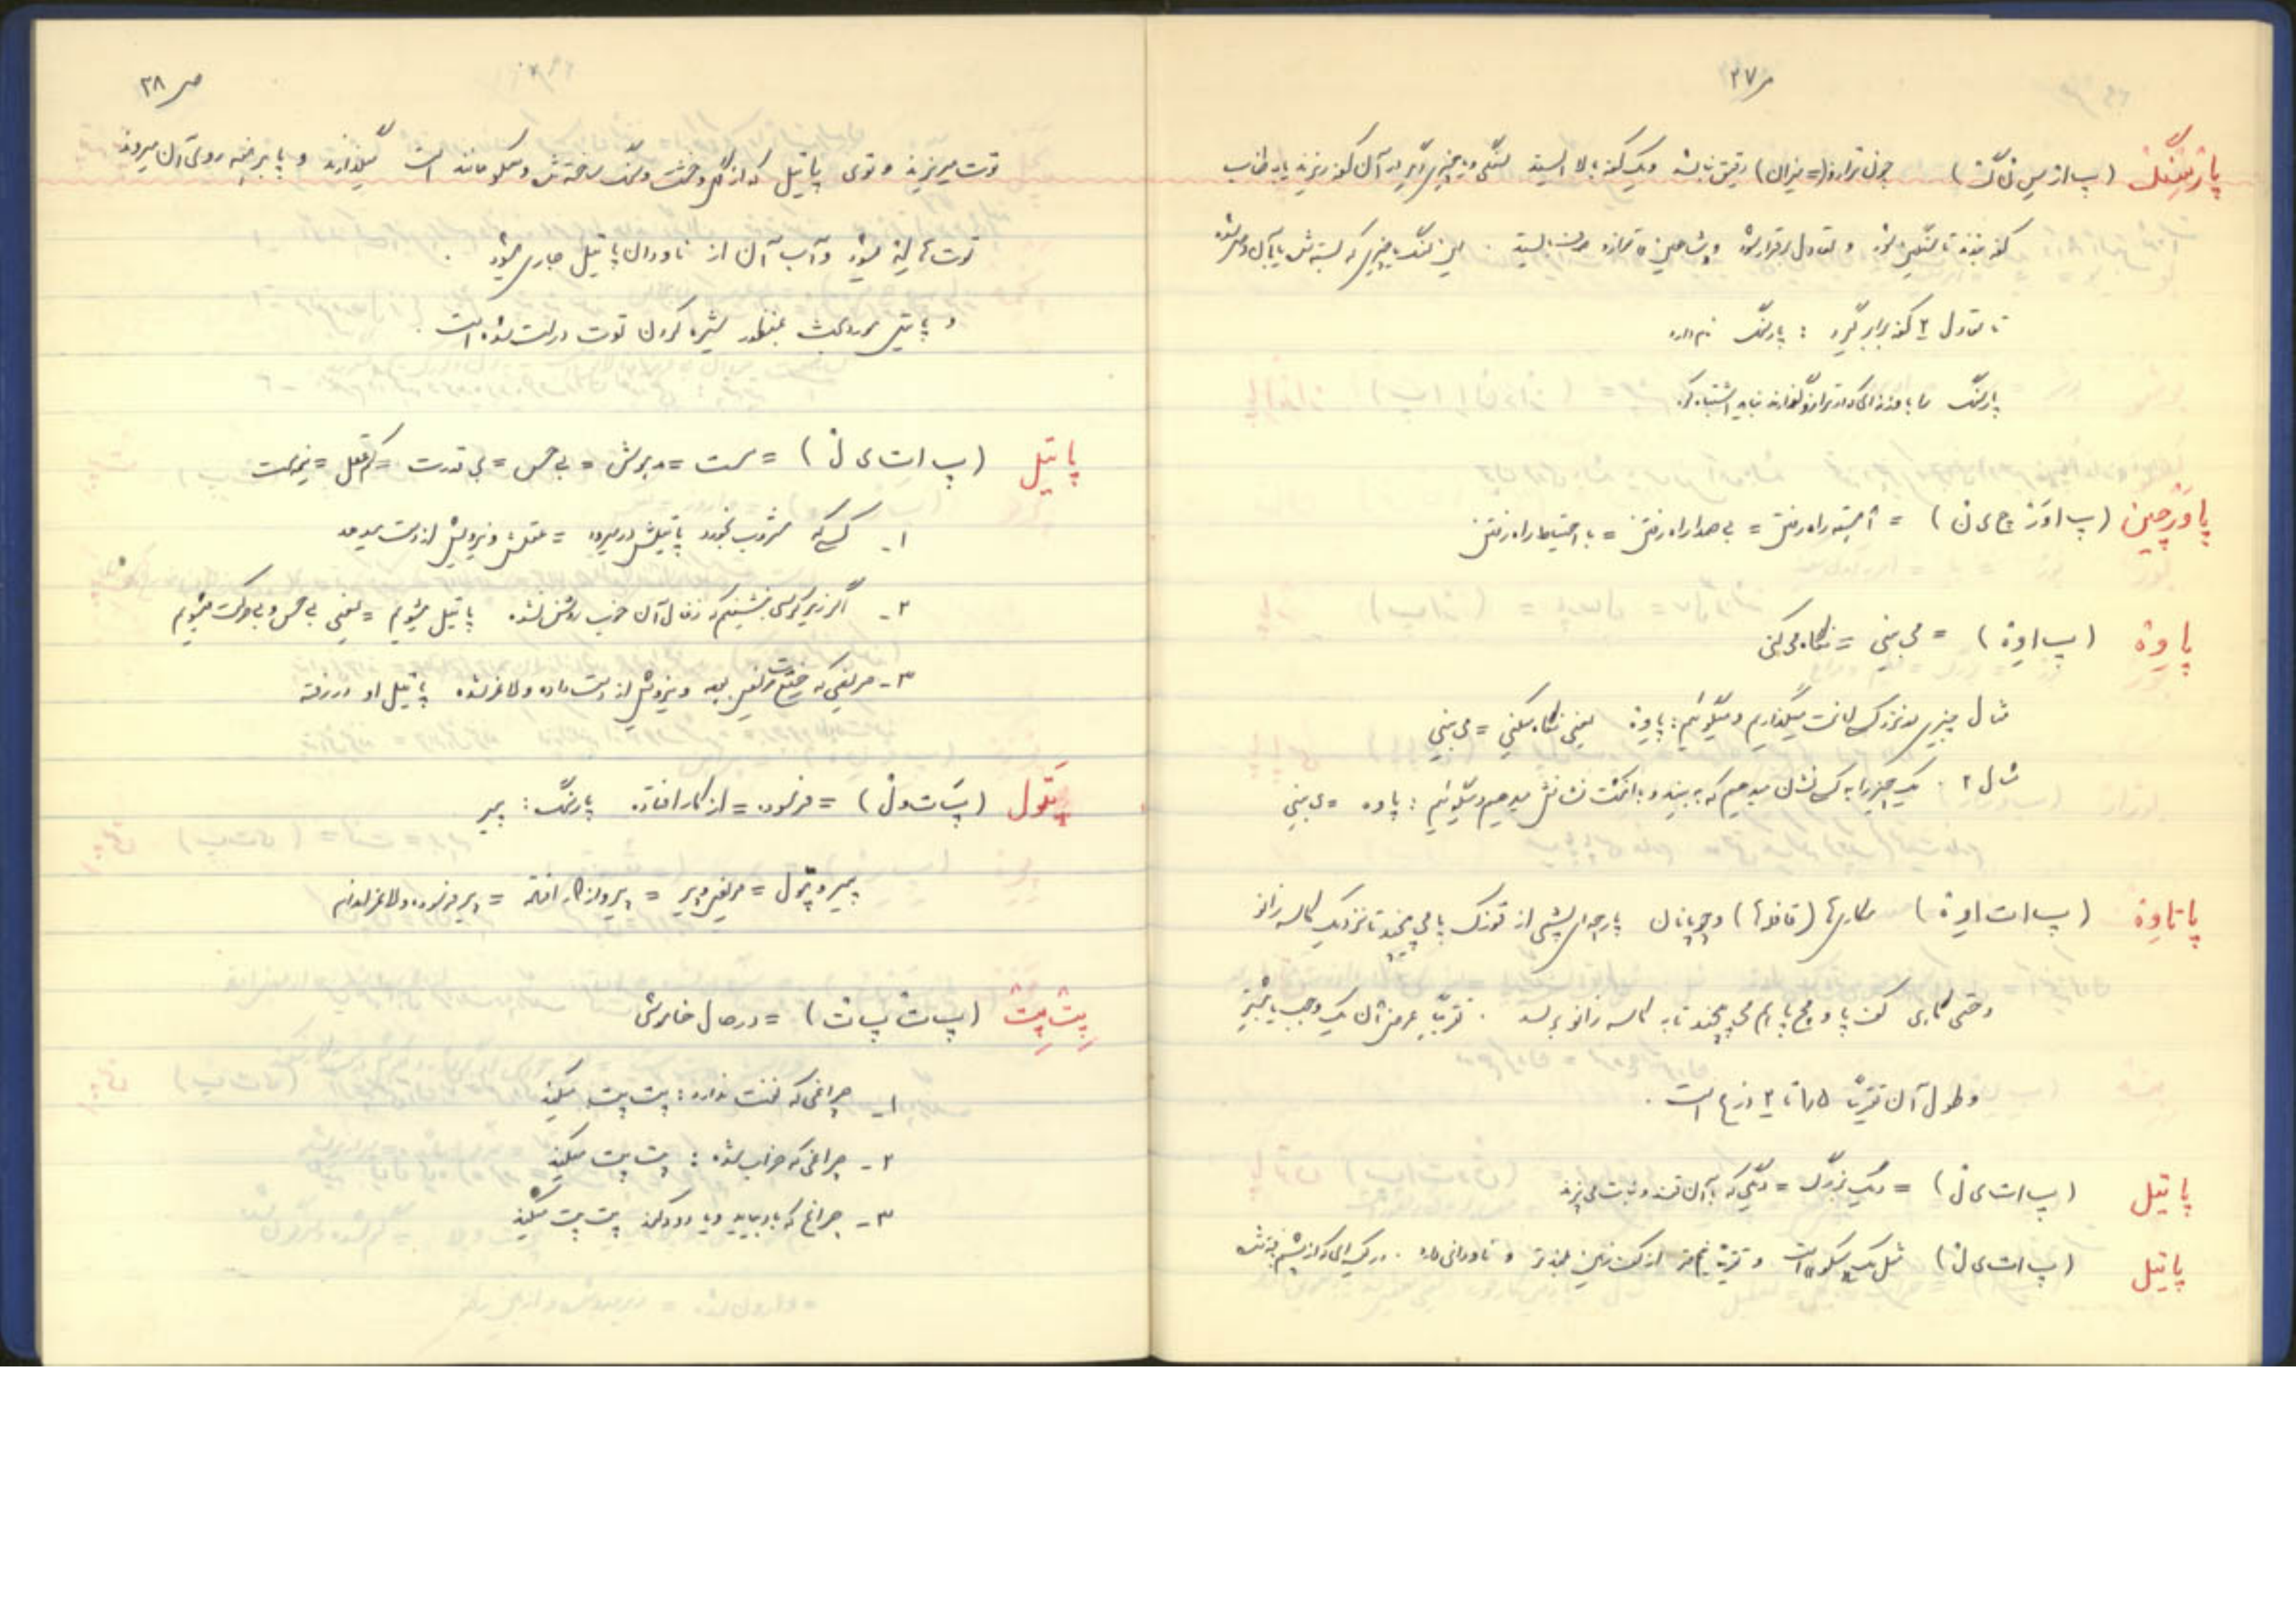 ص ۳۷
پارسنگ (پ ا ر س ن گ) چون ترازو (= میزان) دقیق نباشد و یک کفه بالا ایستد سنگی و یا چیزی دیگر به آن کفه ریزند یا به طناب
کفه بندند تا سنگین شود و تعادل برقرار شود و شاهین ترازو بایستد . این سنگ یا چیزی که بسته شده
تا تعادل ۲ کفه برابر گیرد : پارسنگ نام دارد
پارسنگ را با وزنه‌ای که در ترازو گذارند نباید اشتباه کرد
پاورچین (پ ا و ر چ ی ن) = آهسته راه رفتن = بی صدا راه رفتن = با احتیاط راه رفتن
پاوه (پ ا و ه) = می بینی = نگاه می کنی
مثال چیزی نزد کسی امانت میگذاریم و میگوئیم : پاوه یعنی نگاه میکنی = می بینی
مثال ۲ . یک چیز را به کسی نشان میدهیم که ببیند و با انگشت نشانش میدهیم و میگوئیم : پاوه = می بینی
پاتاوه (پ ا ت ا و ه) مکاریها و چوپانان پارچه‌ای پشمی از قوزک پا می پیچند تا نزدیک کاسه زانو
و حتی گاهی کف پا و مچ پا را هم می پیچند تا به کاسه زانو برسد . تقریباً عرض آن یک وجب یا بیشتر
و طول آن تقریباً ۱/۵ تا ۲ ذرع است .
پاتیل (پ ا ت ی ل) = دیگ بزرگ = دیگی که با آن قند و نبات می پزند
پاتیل (پ ا ت ی ل) مثل یک سکو است و تقریباً نیم متر از کف زمین بلندتر و ناودانی دارد .
ص ۳۸
توت میریزند و توی پاتیل که از گل و خشت و سنگ ساخته شده و سکو مانند است میگذارند و پا برهنه روی آن میروند
توت ها له میشود و آب آن از ناودان پاتیل جاری میشود .
و پاتیل مورد بحث بمنظور شیره کردن توت درست شده است .
پاتیل (پ ا ت ی ل) = سست = مدهوش = بی حس = بی قدرت = کم عقل = نیمه مست
۱- کسی که مشروب بخورد پاتیلش در میرود = عقلش و نیرویش از دست میدهد
۲- اگر زیر کرسی بنشینیم که زغال آن خوب روشن نشده پاتیل میشویم = یعنی بی حس و بی حرکت میشویم
۳- مریضی که سخت مریض بوده و نیرویش از دست داده و لاغر شده پاتیل او در رفته
پتول (پ ت و ل) = فرتوت = از کار افتاده پارسنگ : پیر
پیر و پتول = مریض و پیر = پیر و از کار افتاده = پیر فرسوده و لاغر اندام
پت پت (پ ت پ ت) = در حال خاموشی
۱- چراغی که نفت ندارد : پت پت میکند
۲- چراغی که خراب شده : پت پت میکند
۳- چراغ که باد بیاید و یا دود کند پت پت میکند